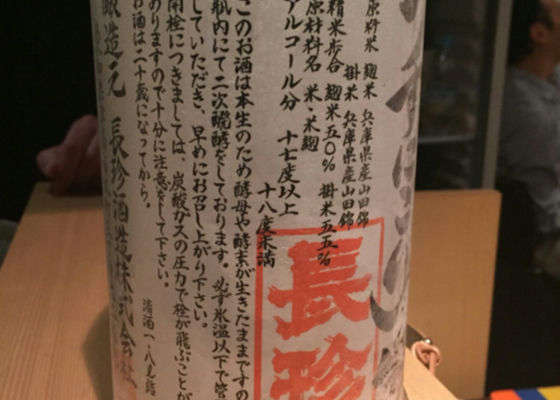 原料米 麹米 兵庫県産山田錦
掛米 兵庫県産山田錦
精米歩合 麹米五〇% 掛米五五%
原材料名 米・米麹
アルコール分 十七度以上
十八度未満
このお酒は本生のため酵母や酵素が生きたままですの
瓶内にて二次醗酵をしております。必ず氷温以下で管
していただき、早めにお召し上がり下さい。
開栓につきましては、炭酸ガスの圧力で栓が飛ぶことが
ありますので十分に注意をして下さい。
お酒は二十歳になってから。
清酒 一・八兄詰
醸造元 長珍酒造株式会社
長珍